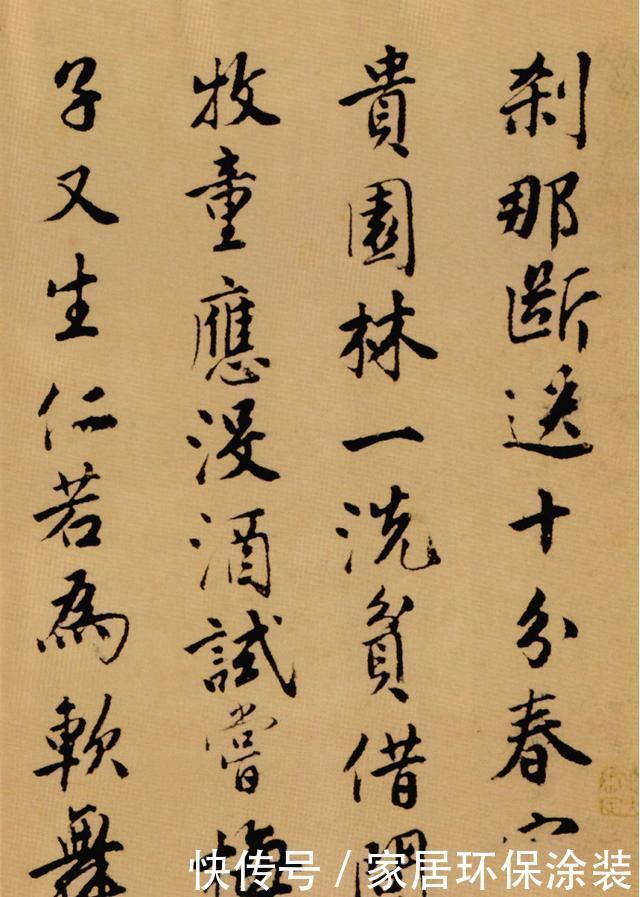 刹那斷送十分春
貴園林一洗貧借問
牧童應没酒試嘗梅
子又生仁若為軟舞
快传号 / 家居环保涂装